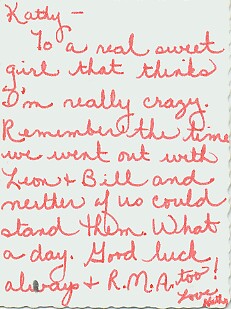 Kathy –
To a real sweet
girl that thinks
I'm really crazy.
Remember the time
we went out with
Leon + Bill and
neither of us could
stand them. What
a day. Good luck
always + R.M.A. too!
Love,
Kathy